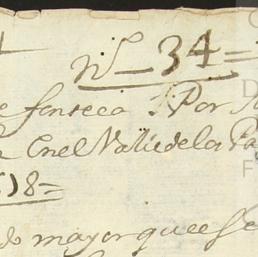 Nº 34=
e fonseca Por
Enel Valle de la Pa
18=
do mayor que es